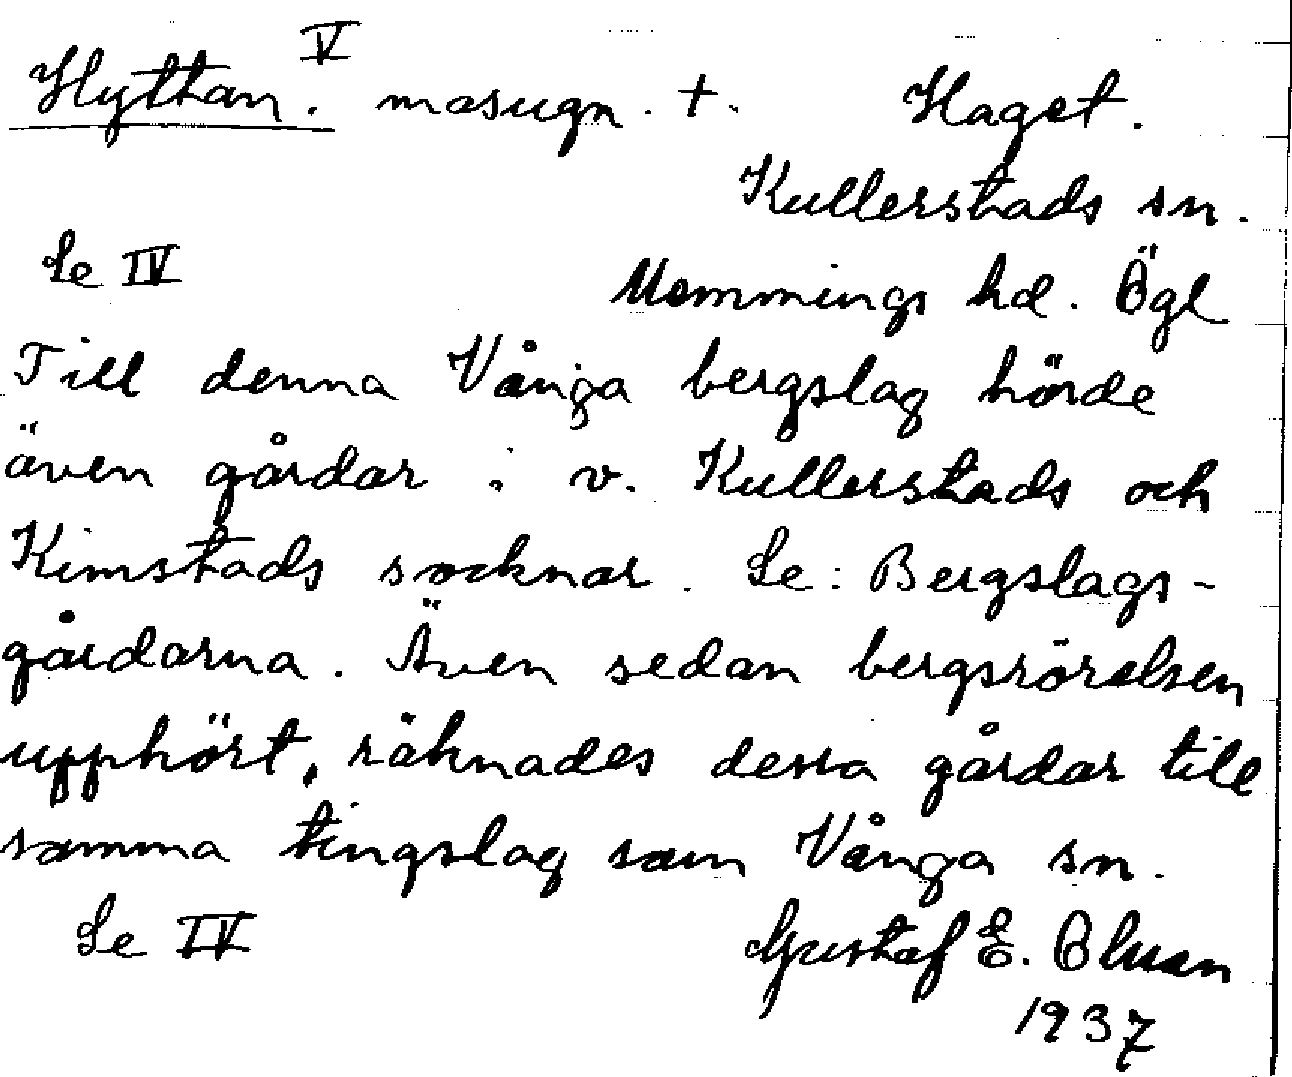 V
Hyttan. masugn. +. Haget.
Kullerstads sn.
Se IV Memmings hd. Ögl
Till denna Vånga bergslag hörde
även gårdar i v. Kullerstads och
Kimstads socknar. Se: Bergslags-
gårdarna. Även sedan bergsrörelsen
upphört, räknades dessa gårdar till
samma tingslag som Vånga sn.
Se IV Gustaf E. Olsson
1937